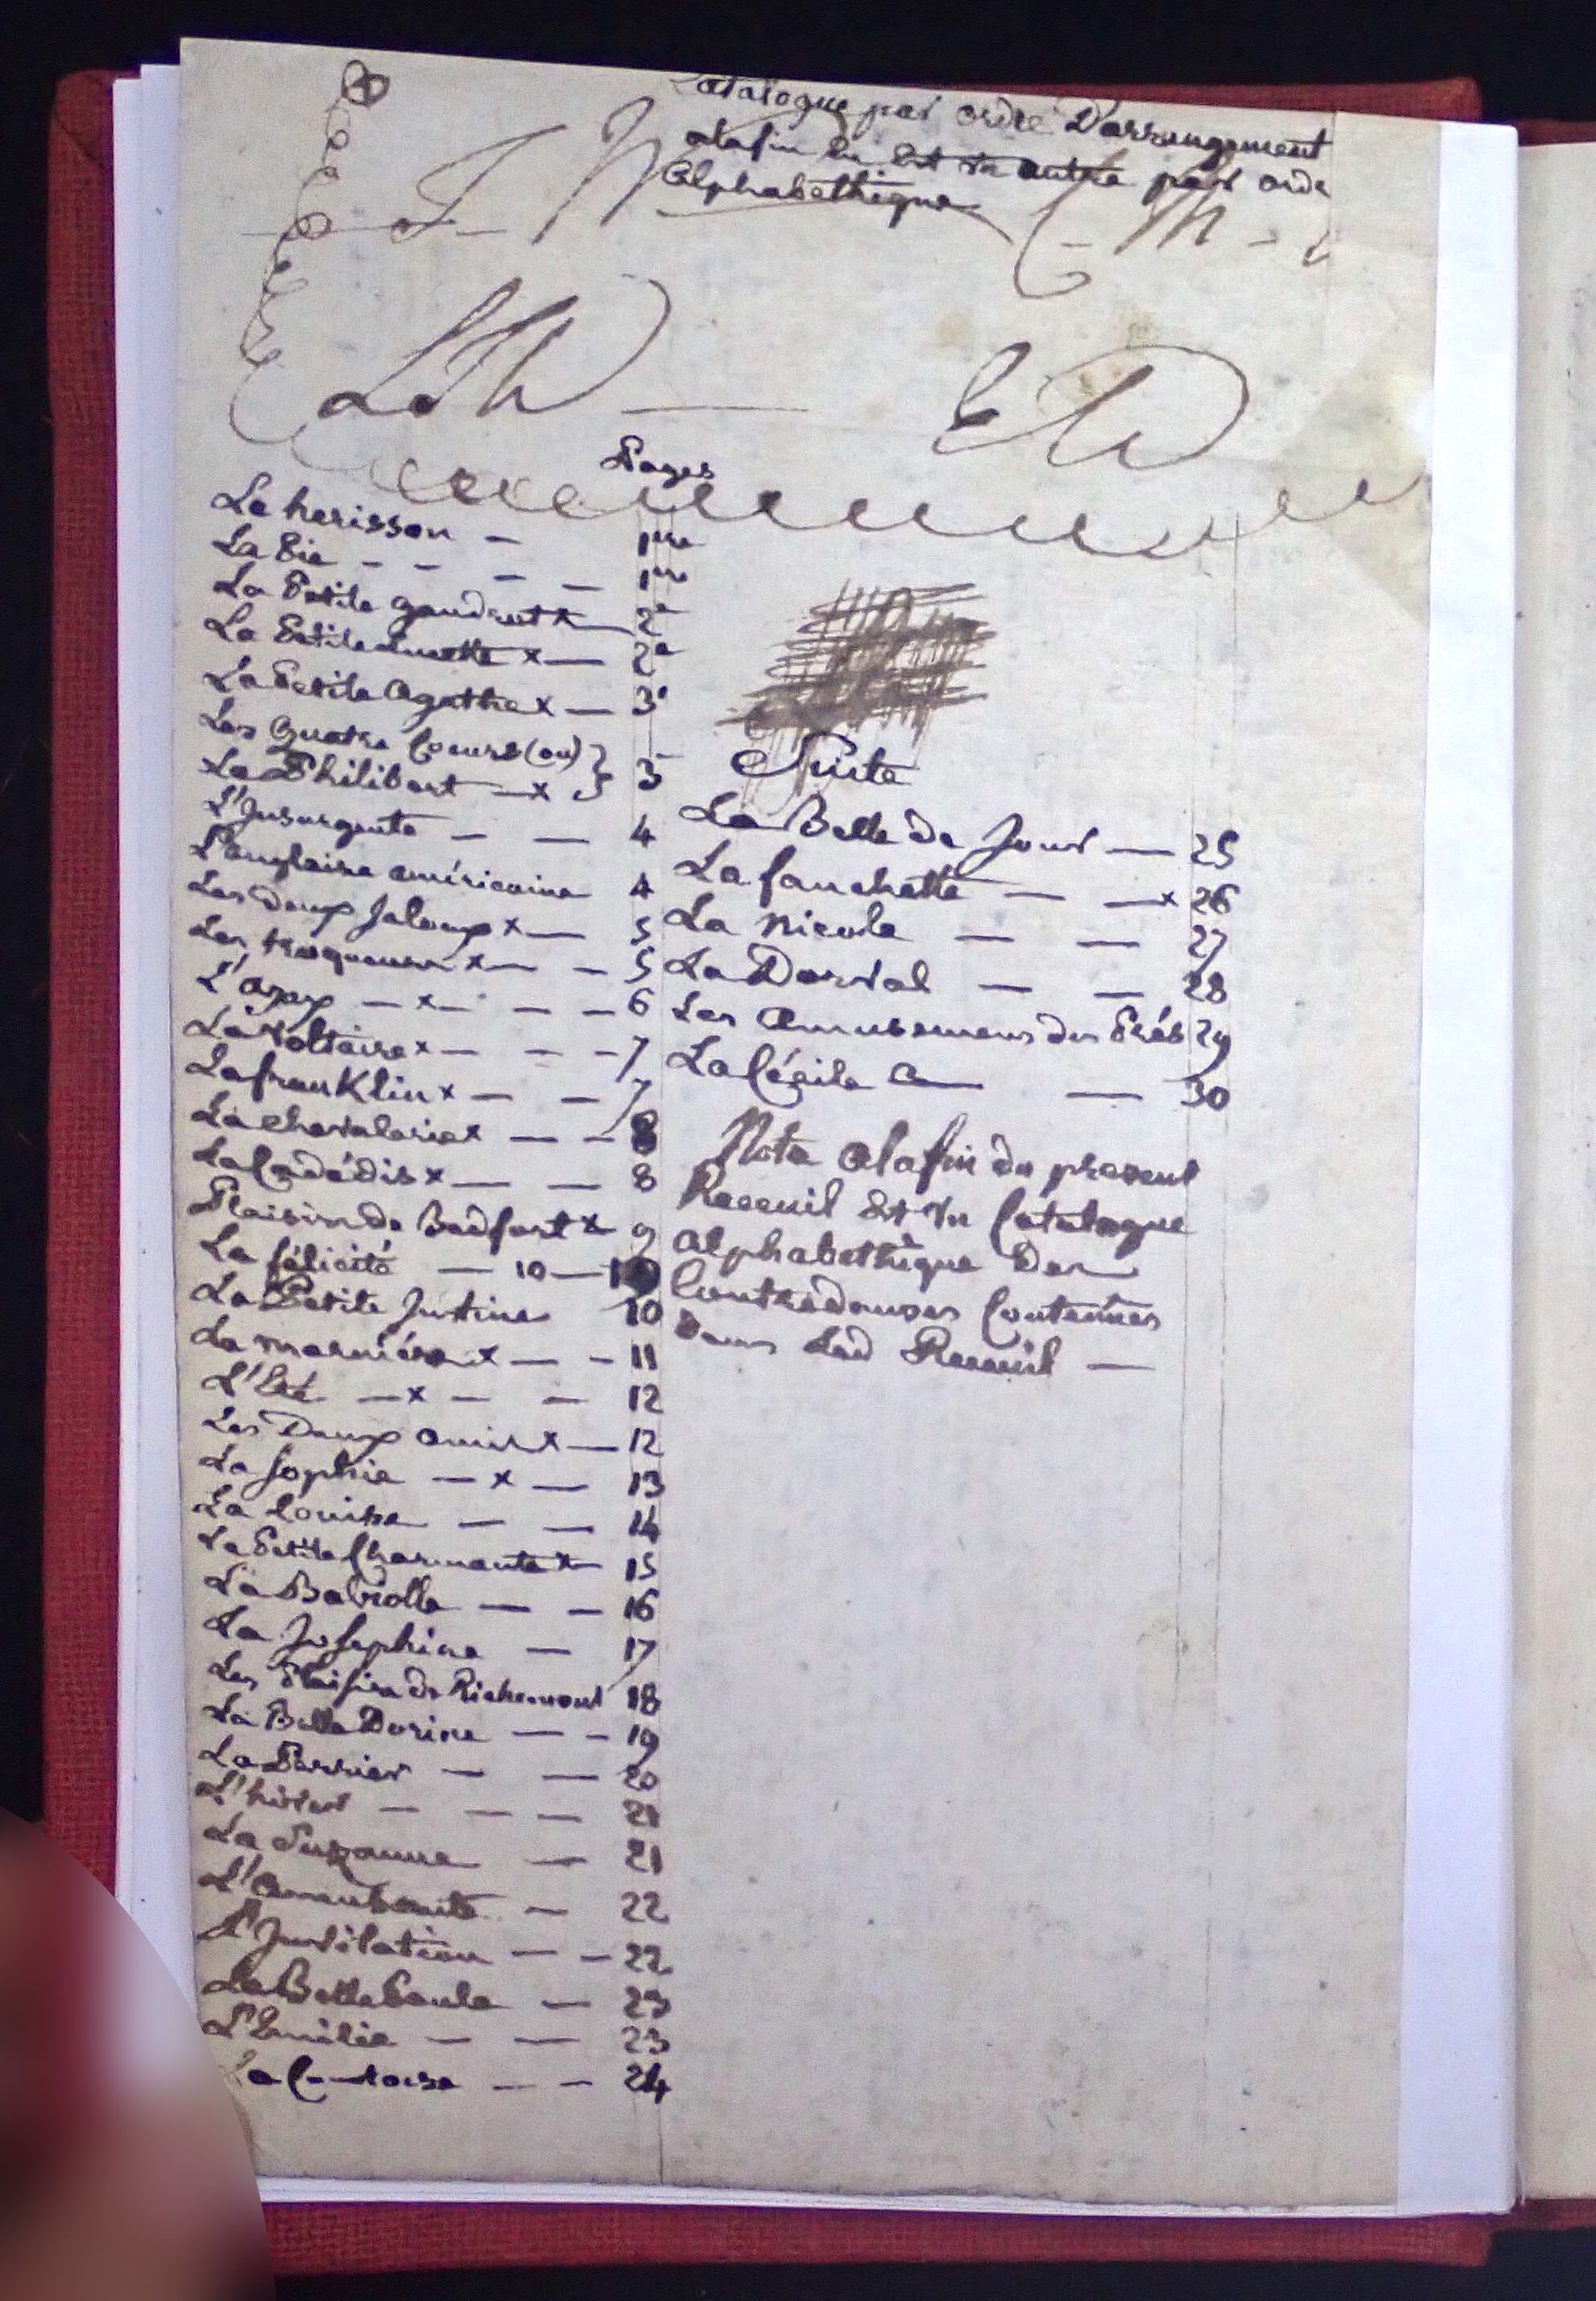 Catalogue par ordre Darrangement
alafin En Est un autre par ordre
Alphabéthique
Pages
Le herisson — 1ere
La Pie — — — — 1ere
La Petite gaudxx — 2e
La Petite x — 2e
La Petite Agathe x — 3e
Les Quatre Coeurs (ou) }
La Philibert — x } 3
L'Insurgente — — 4
L'anglaise américaine 4
Les Deux Jaloux x — 5
Les troqueurs x — — 5
L'ajax — x — — — 6
La Voltaire x — — — 7
La franKlin x — — 7
La chevalerie x — — 8
La Cadédis x — — 8
Plaisir de Bedfort x 9
La félicité — 10 —
La Petite Justine 10
La marnière x — — 11
L'Eté — x — — 12
Les Deux amis x — 12
La Sophie — x — 13
La Louise — — 14
La Petite Charmante x — 15
La Babiolle — — 16
La Josephine — 17
Les Plaisirs de Richemont 18
La Belle Dorine — — 19
La Perrier — — 20
L'hiver — — — 21
La Suzanne — 21
L'Amusante — 22
L'Invitation — — 22
La Belle Paule — 23
L'Emilie — — 23
La — — 24
Suite
La Belle de Jour — 25
La fanchette — — x 26
La Nicole — — 27
La Dorval — — 28
Les Amusemens des Prés 29
La Cécile — — 30
Nota Alafin du present
Receuil Est un Catalogue
Alphabethique Des
Contredanses Contenues
Dans Led Receuil —